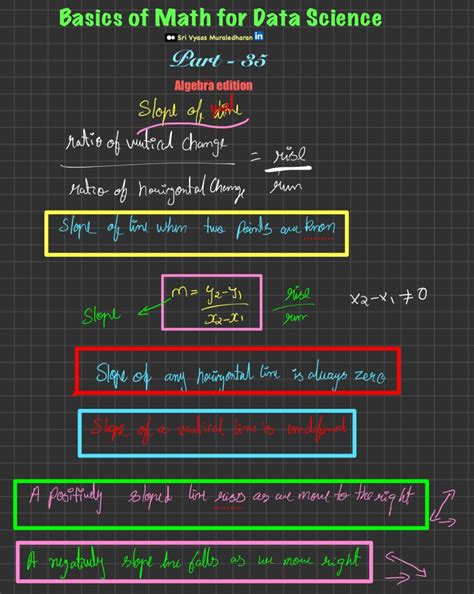 Basics of Math for Data Science
Sri Vyaas Muraledharan in
Part - 35
Algebra edition
Slope of line
ratio of vertical change
ratio of horizontal change
= rise
run
Slope of line when two points are known
Slope
m = y2-y1
x2-x1
rise
run
x2-x1 ≠ 0
Slope of any horizontal line is always zero
Slope of a vertical line is undefined
A positively sloped line rises as we move to the right
A negatively slope line falls as we move right